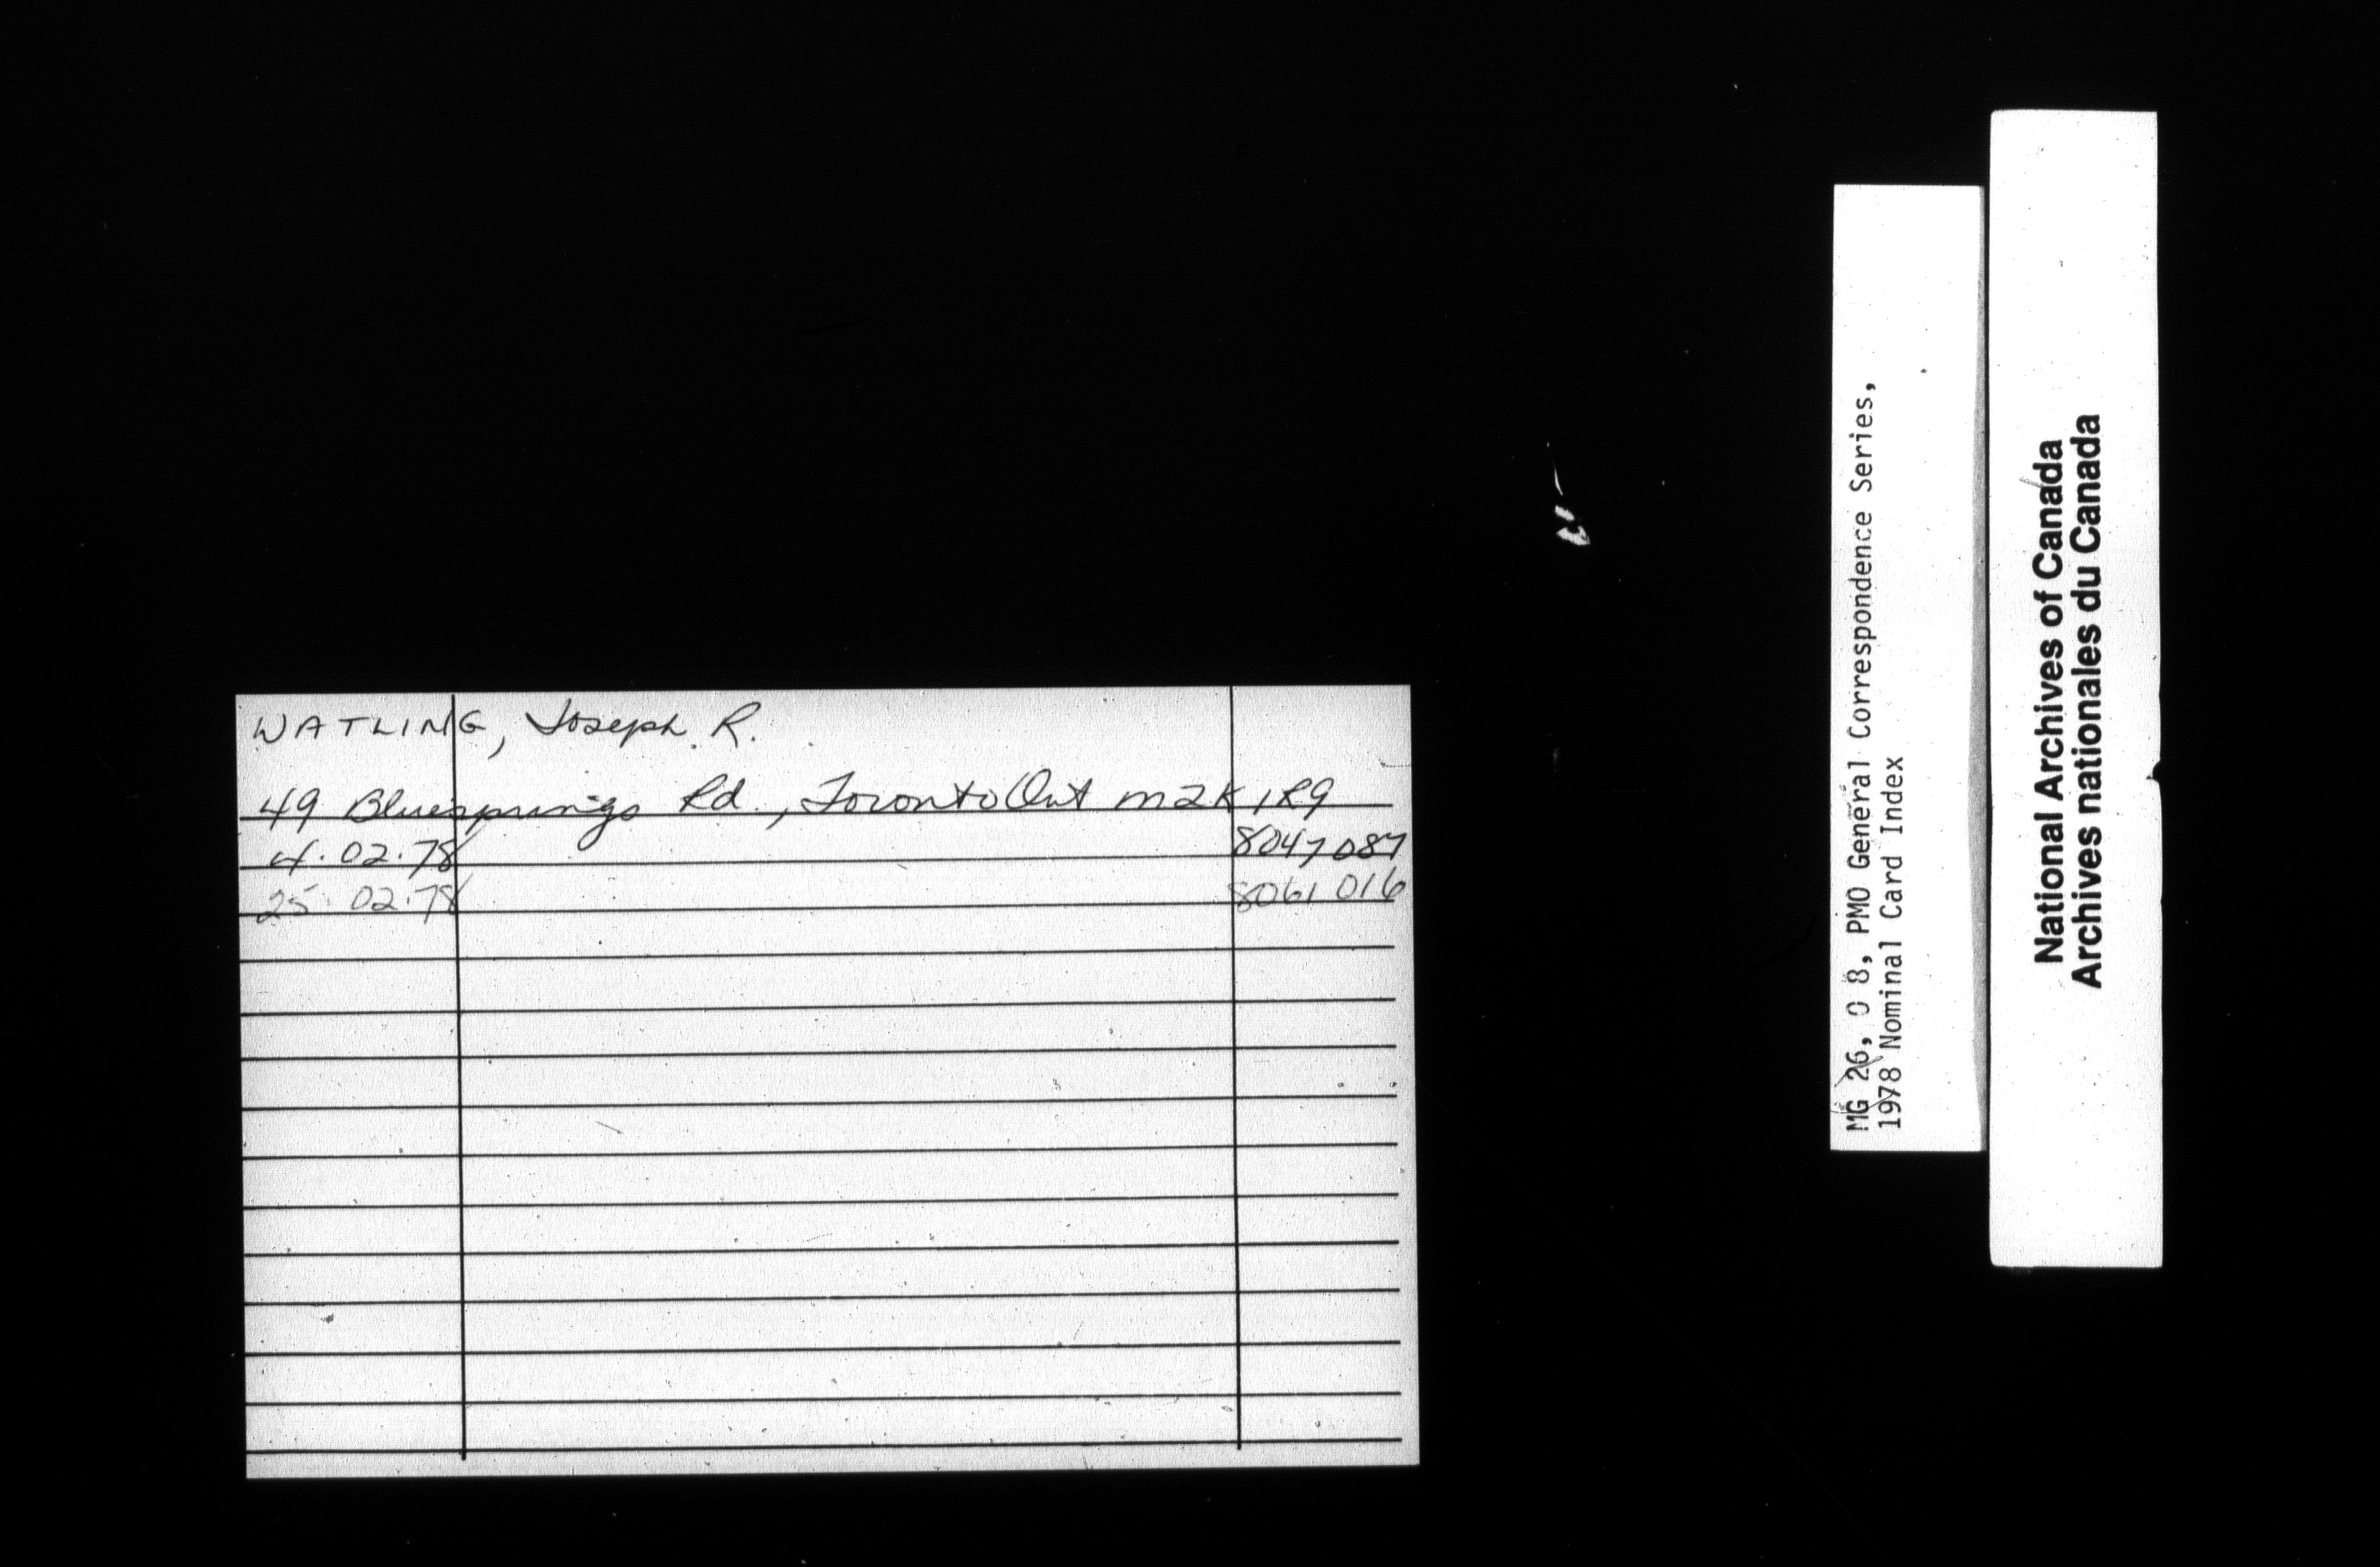 WATLING, Joseph R.
49 Bluesprings Rd., Toronto Ont M2K 1R9
4.02.78 8047087
25.02.78 8061016
MG 26, O 8, PMO General Correspondence Series,
1978 Nominal Card Index
National Archives of Canada
Archives nationales du Canada